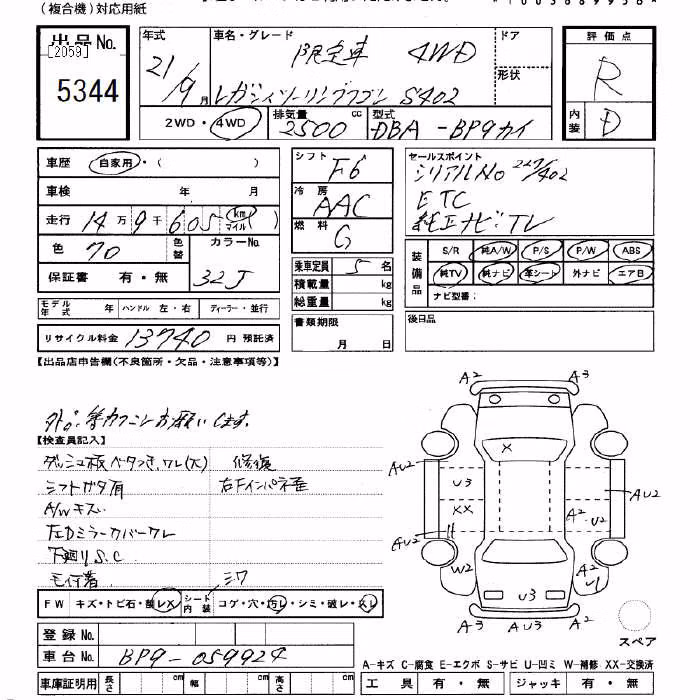 (複合機)対応用紙
出品No.
[2059]
5344
年式
21/9月
車名・グレード
限定車 4WD
レガシィツーリングワゴン S402
ドア
形状
2WD・4WD
排気量 2500 cc
型式 DBA-BP9カイ
評価点
R
内装 D
車歴 自家用・( )
車検 年 月
走行 14万9千605 km マイル
色 70 色替
カラーNo. 32J
保証書 有・無
モデル年式 年 ハンドル 左・右 ディーラー・並行
リサイクル料金 13740 円 預託済
シフト F6
冷房 AAC
燃料 G
乗車定員 5 名
積載量 kg
総重量 kg
書類期限
月 日
セールスポイント
シリアルNo 227/402
ETC
純正ナビ TV
装備品
S/R 純A/W P/S P/W ABS
純TV 純ナビ 革シート 外ナビ エアB
ナビ型番:
後日品
【出品店申告欄(不良箇所・欠品・注意事項等)】
お願いします。
【検査員記入】
ダッシュ板ベタつき、ワレ(大) 修復
シフトガタ有 右Fインパネ歪
A/Wキズ
左Dミラーカバーワレ
下廻りS.C
F W キズ・トビ石・補レX
シート内装 コゲ・穴・汚レ・シミ・破レ・スレ
登録No.
車台No. BP9-059924
車庫証明用 長さ cm 幅 cm 高さ cm
A2 A3
AU2 U3 XX X AU2
A2 U2
AU2 W2 U3 A2 U1
A3 AU3 A2
スペア
A-キズ C-腐食 E-エクボ S-サビ U-凹ミ W-補修 XX-交換済
工具 有・無 ジャッキ 有・無